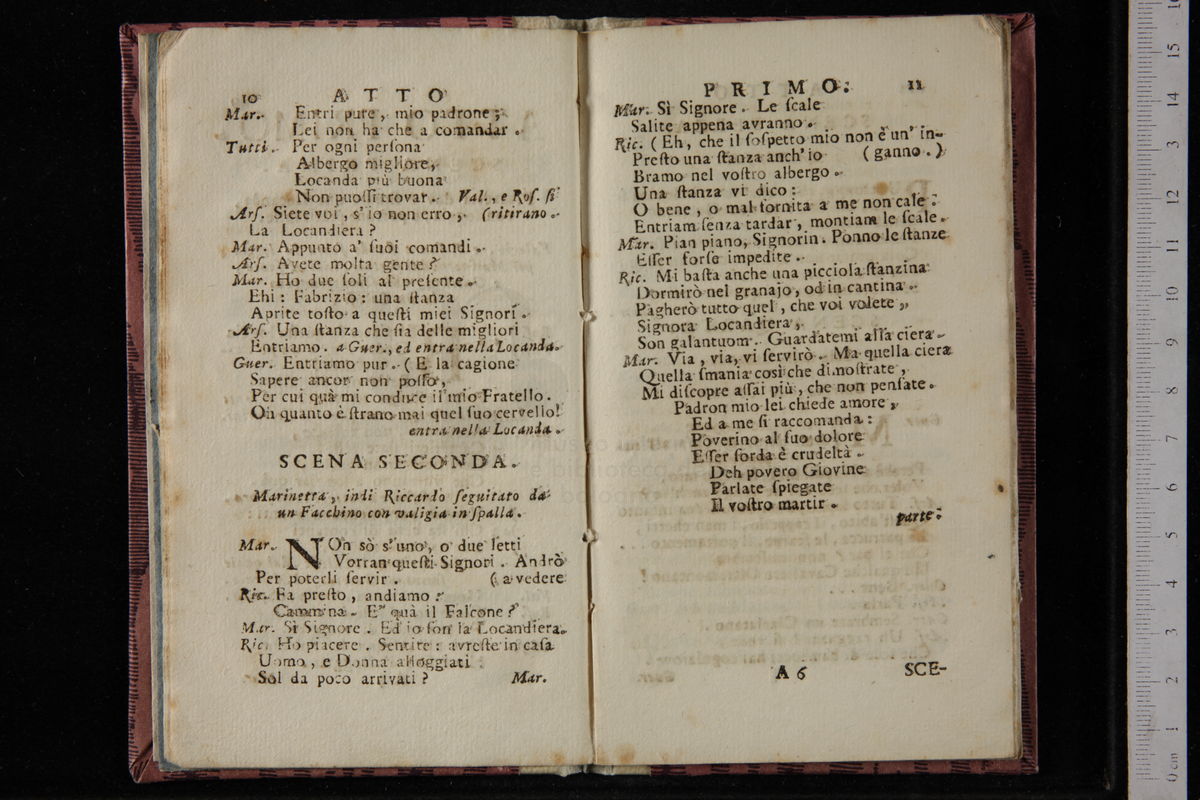 10 ATTO
Mar. Entri pure, mio padrone;
Lei non ha che a comandar.
Tutti. Per ogni perſona
Albergo migliore,
Locanda più buona
Non puoſſi trovar. Val., e Roſ. ſi
Arſ. Siete voi, s'io non erro, (ritirano.
La Locandiera?
Mar. Appunto a' ſuoi comandi.
Arſ. Avete molta gente?
Mar. Ho due ſoli al preſente.
Ehi: Fabrizio: una ſtanza
Aprite toſto a queſti miei Signori.
Arſ. Una ſtanza che ſia delle migliori
Entriamo. a Guer., ed entra nella Locanda.
Guer. Entriamo pur. (E la cagione
Sapere ancor non poſſo,
Per cui quà mi conduce il mio Fratello.
Oh quanto è ſtrano mai quel ſuo cervello!
entra nella Locanda.
SCENA SECONDA.
Marinetta, indi Riccardo ſeguitato da
un Facchino con valigia in ſpalla.
Mar. NOn sò s'uno, o due letti
Vorran queſti Signori. Andrò
Per poterli ſervir. (a vedere
Ric. Fa preſto, andiamo:
Cammina. E' quà il Falcone?
Mar. Sì Signore. Ed io ſon la Locandiera.
Ric. Ho piacere. Sentite: avreſte in caſa
Uomo, e Donna alloggiati
Sol da poco arrivati? Mar.
PRIMO. 11
Mar. Sì Signore. Le ſcale
Salite appena avranno.
Ric. (Eh, che il ſoſpetto mio non è un' in-
Preſto una ſtanza anch'io (ganno.)
Bramo nel voſtro albergo.
Una ſtanza vi dico:
O bene, o mal fornita a me non cale:
Entriam ſenza tardar, montiam le ſcale.
Mar. Pian piano, Signorin. Ponno le ſtanze
Eſſer forſe impedite.
Ric. Mi baſta anche una picciola ſtanzina
Dormirò nel granajo, od in cantina.
Pagherò tutto quel, che voi volete,
Signora Locandiera,
Son galantuom. Guardatemi alla ciera.
Mar. Via, via, vi ſervirò. Ma quella ciera
Quella ſmania così che dimoſtrate,
Mi diſcopre aſſai più, che non penſate.
Padron mio lei chiede amore,
Ed a me ſi raccomanda:
Poverino al ſuo dolore
Eſſer ſorda è crudeltà.
Deh povero Giovine
Parlate ſpiegate
Il voſtro martir.
parte.
A 6 SCE-